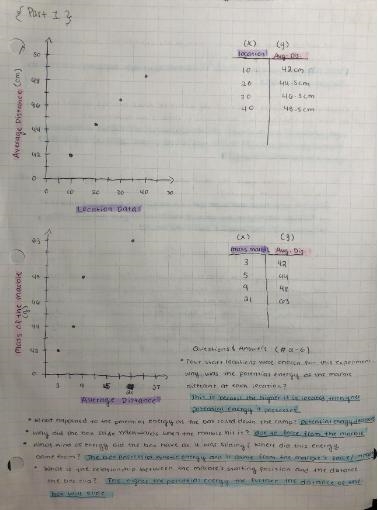 { Part 1 }
(x) (y)
location Avg. Dis.
10 42cm
20 44.5cm
30 46.5cm
40 48.5cm
Average Distance (cm)
50
48
46
44
42
0
0 10 20 30 40 50
Location Data
(x) (y)
mass marble Avg. Dis.
3 42
5 44
9 48
21 63
Mass of the marble
(g)
63
42
0
3 9
Average Distance
Questions & Answers (#2-6)
• Four start locations were chosen for this experiment
why was the potential energy of the marble
different at each location?
This is because the higher it is located the more
potential energy it possessed
• What happened to the potential energy as the ball rolled down the ramp? Potential energy
• Why did the box slide when the marble hit it? due to force from the marble
• What kind of energy did the box have as it was sliding? Where did this energy
come from? The box kinetic energy and it came from the marble's force
• What is the relationship between the marble's starting position and the distance
the box slid? The higher the potential energy the further the distance of the
box will slide